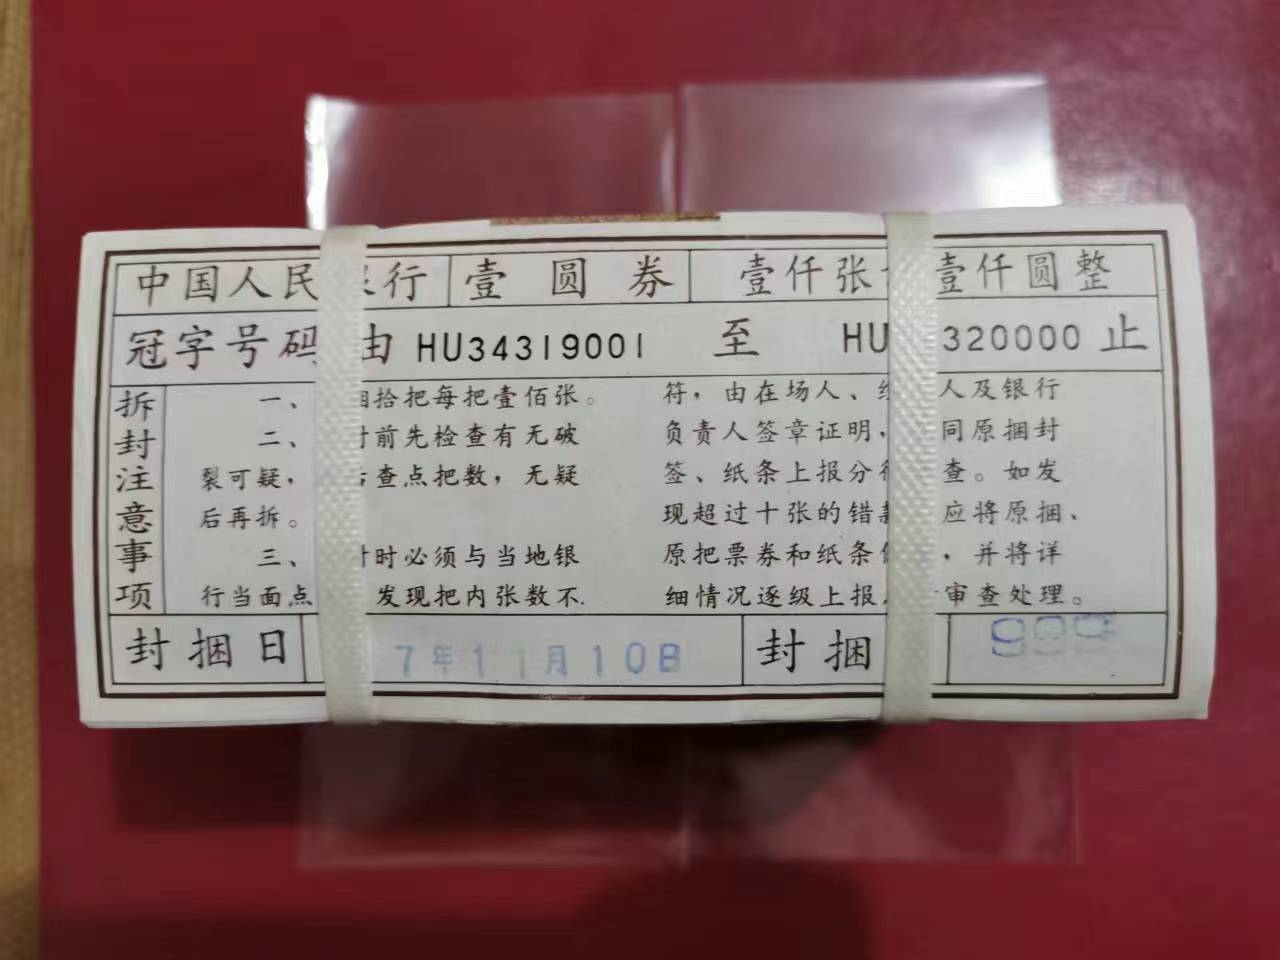 中国人民银行 壹圆券 壹仟张 壹仟圆整
冠字号码由 HU34319001 至 HU 320000 止
拆封注意事项
一、 捆拾把每把壹佰张。
二、 封前先检查有无破
裂可疑, 查点把数，无疑
后再拆。
三、 封时必须与当地银
行当面点 发现把内张数不
符，由在场人、 人及银行
负责人签章证明， 同原捆封
签、纸条上报分行 查。如发
现超过十张的错款 应将原捆、
原把票券和纸条 ，并将详
细情况逐级上报 审查处理。
封捆日 7年11月10日 封捆 909